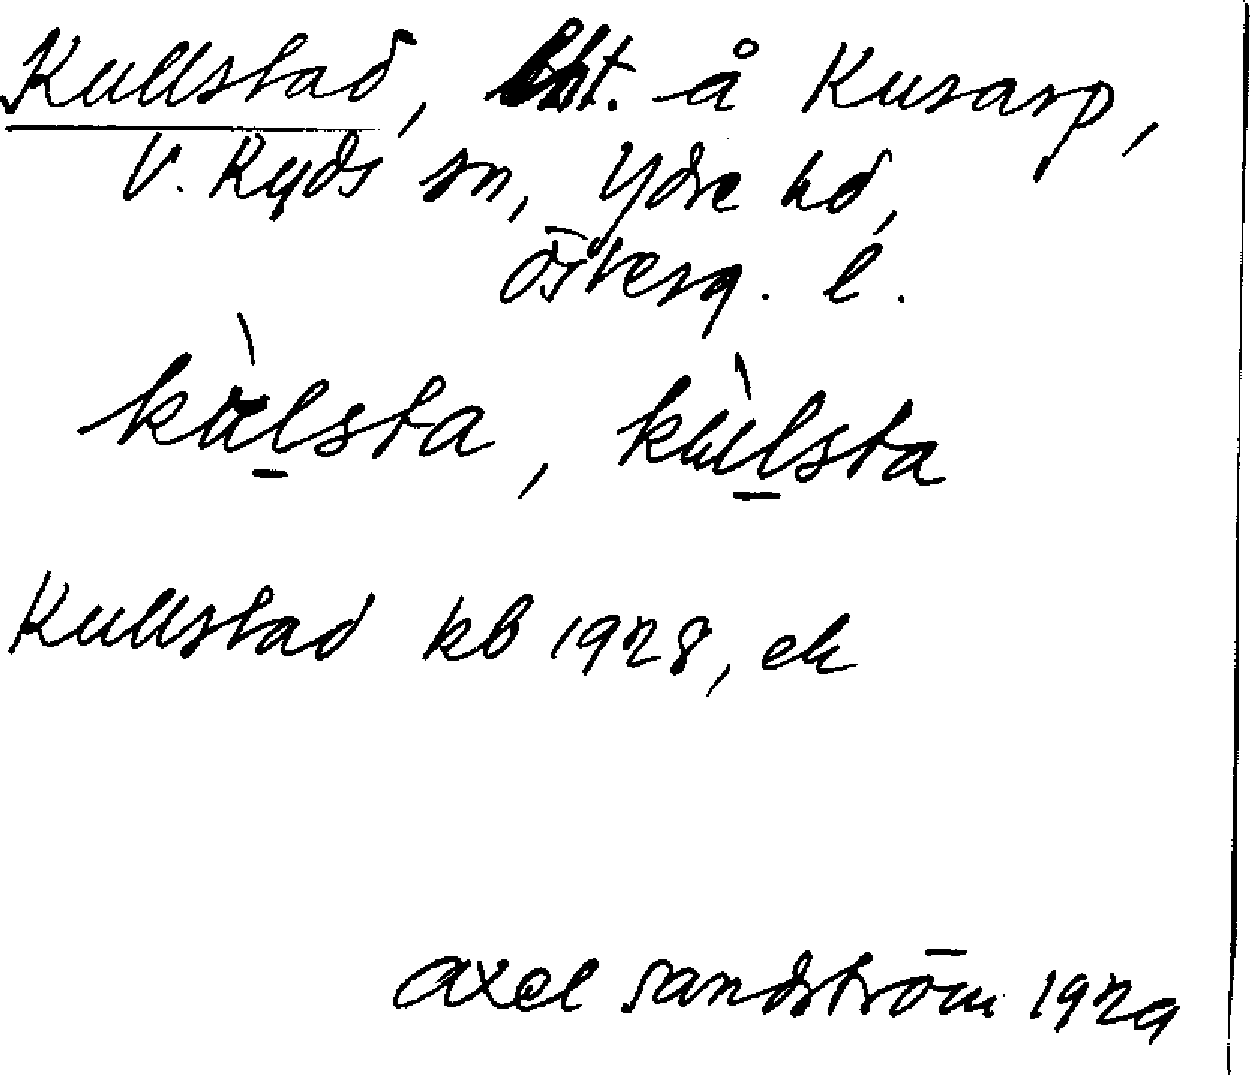 Kullstad, lht. å Kusarp,
V. Ryds sn, Ydre hd,
Österg. l.
kùlsta, kùlsta
Kullstad kb 1928, ek
Axel Sandström 1929